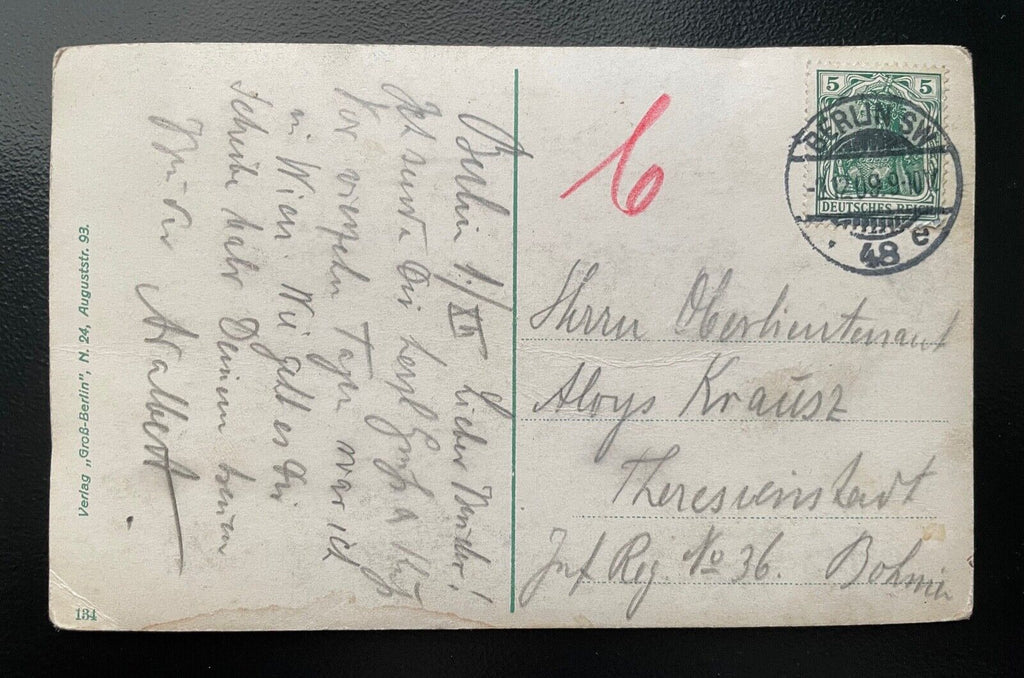 Berlin 1./XII Lieber Bruder!
Ich sende Dir herzl. Gruß u. Kuß
Vor vierzehn Tagen war ich
in Wien. Wie geht es Dir
schreibe bald Deinem treuen
Bruder
Adalbert
Verlag „Groß-Berlin", N. 24, Auguststr. 93.
134
6
5 5
DEUTSCHES REICH
BERLIN SW
9-10V
48 e
Herrn Oberlieutenant
Aloys Krausz
Theresienstadt
Inf Reg. No 36. Böhmen